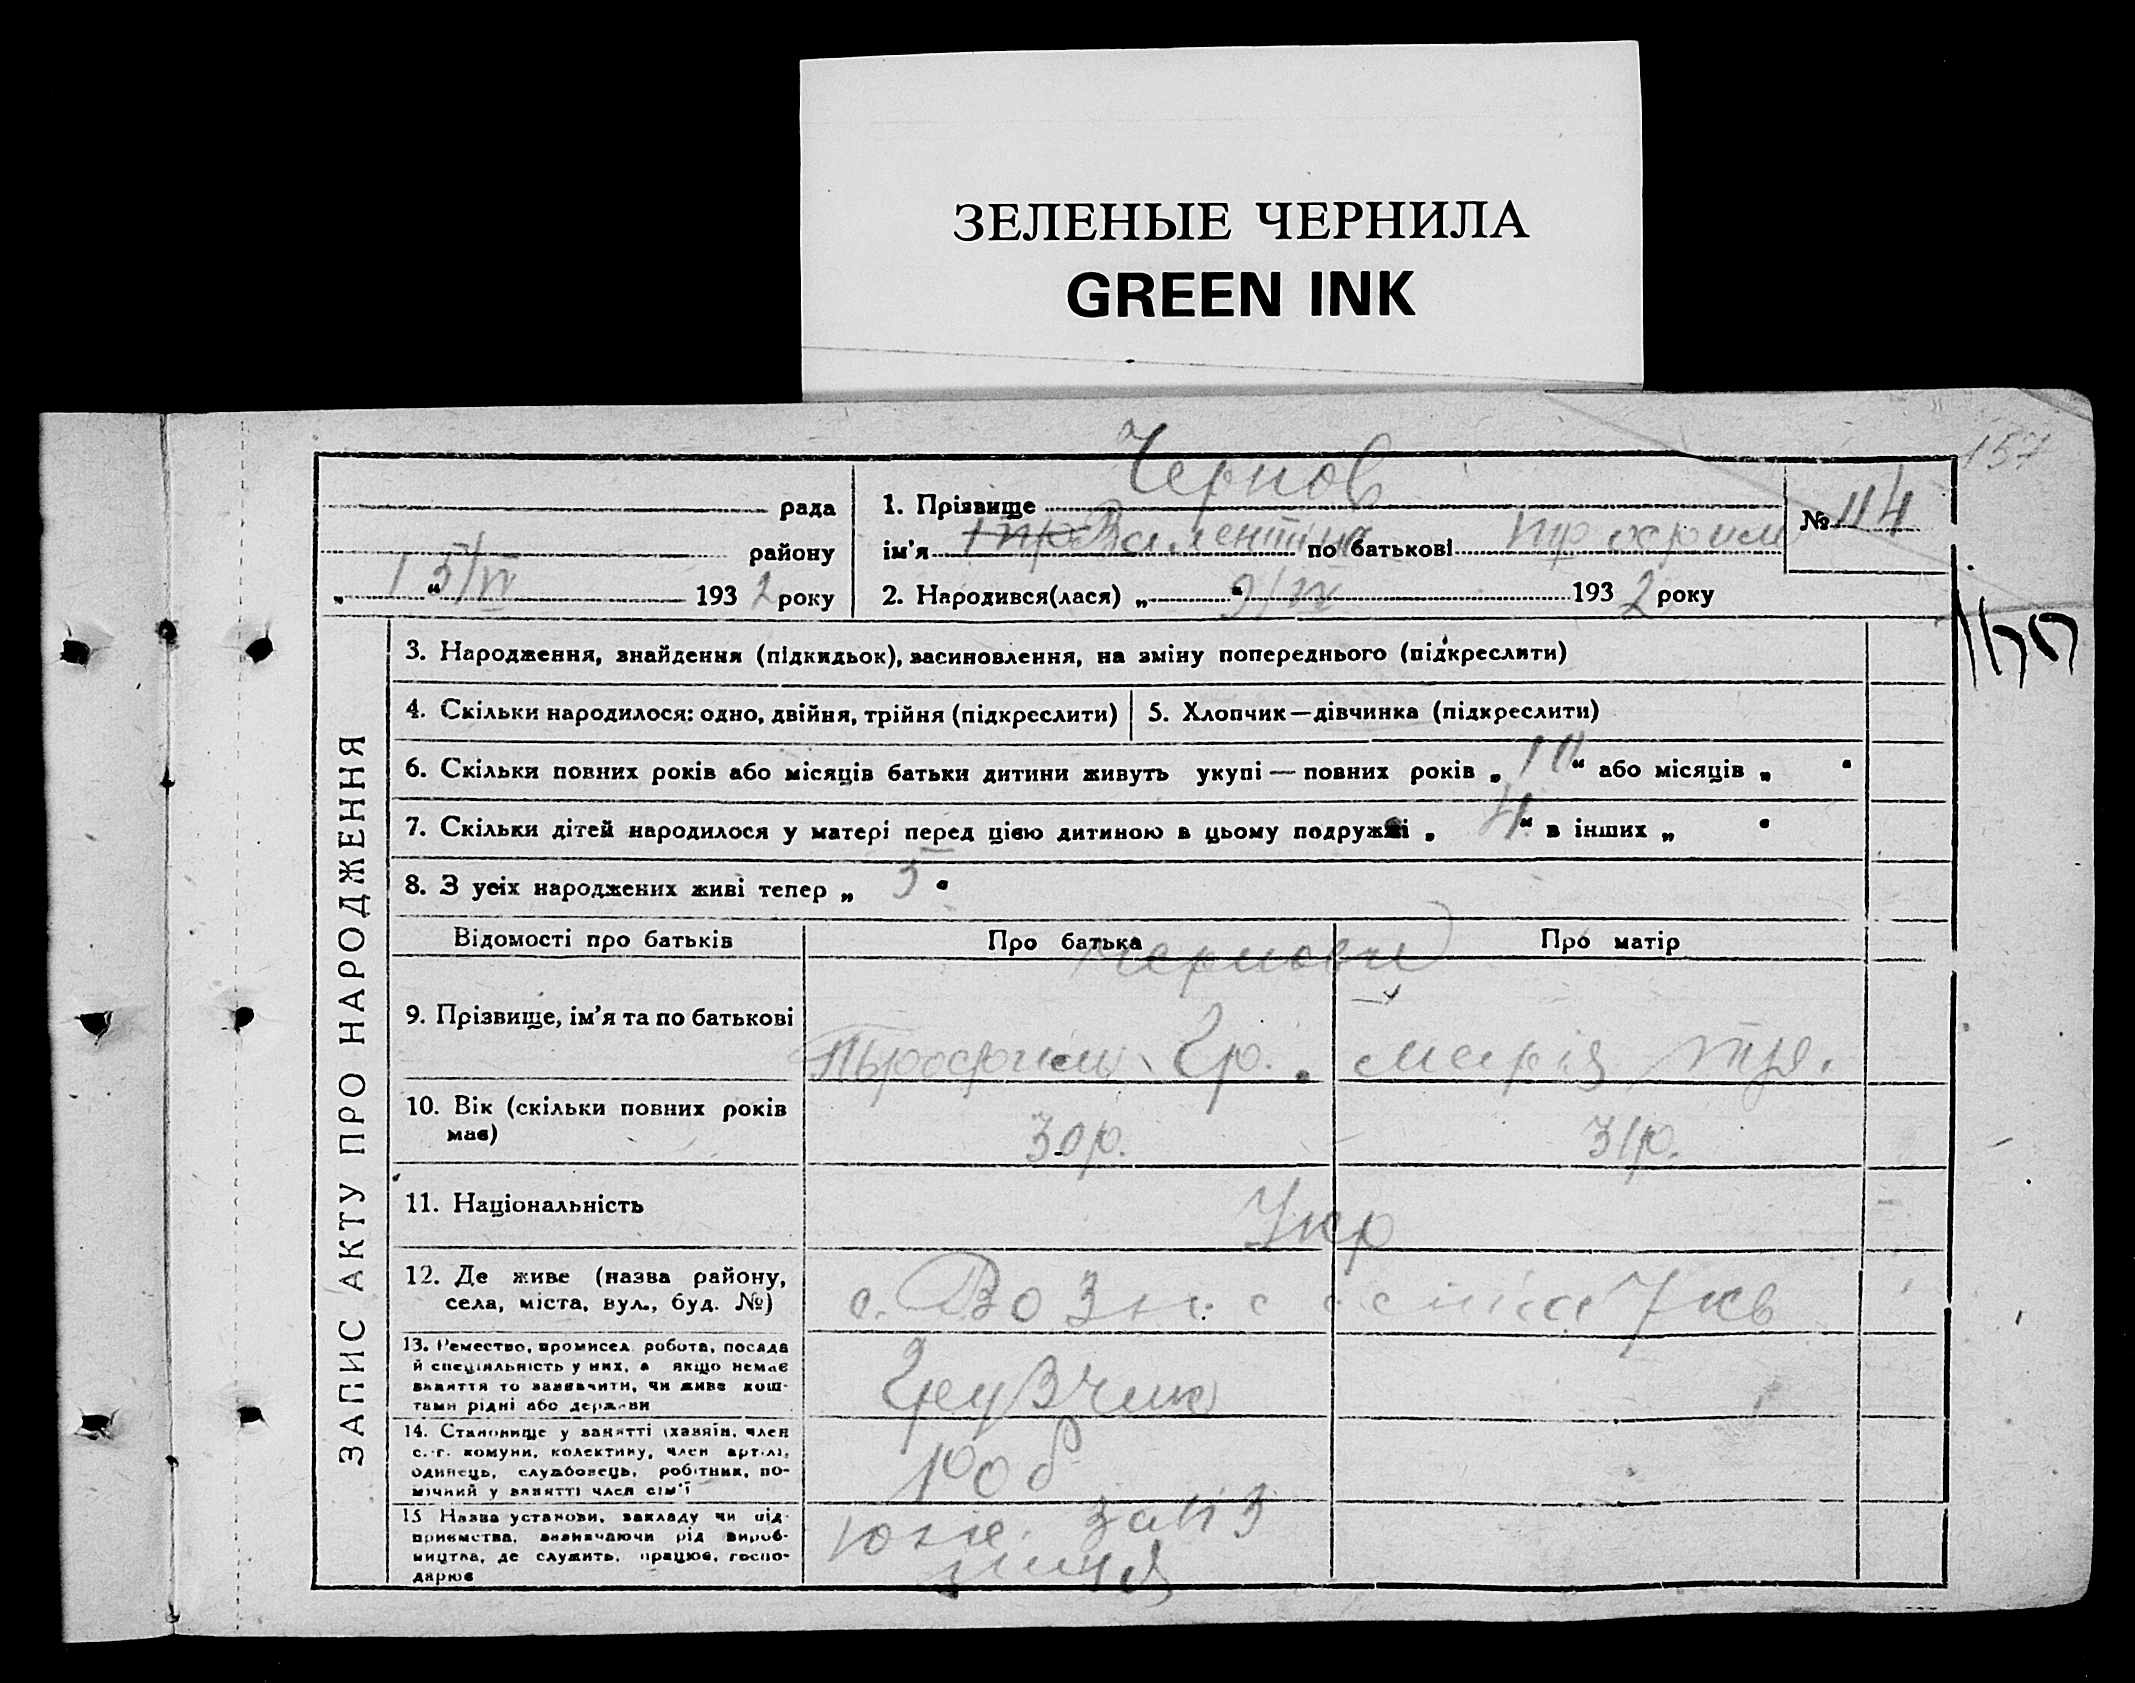 ЗЕЛЕНЫЕ ЧЕРНИЛА
GREEN INK
157
Чернов
рада
1. Прізвище
№ 114
району
ім'я Валентіна по батькові Трохрим
„ 15/IV “ 1932 року
2. Народився(лася) „ 9/IV “ 1932 року
ЗАПИС АКТУ ПРО НАРОДЖЕННЯ
3. Народження, знайдення (підкидьок), засиновлення, на зміну попереднього (підкреслити)
4. Скільки народилося: одно, двійня, трійня (підкреслити)
5. Хлопчик—дівчинка (підкреслити)
6. Скільки повних років або місяців батьки дитини живуть укупі — повних років „ 11 “ або місяців „ “
7. Скільки дітей народилося у матері перед цією дитиною в цьому подружжі „ 4 “ в інших „ “
8. З усіх народжених живі тепер „ 5 “
Відомості про батьків
Про батька
Про матір
Чернови
9. Прізвище, ім'я та по батькові
Гр.
Марія
10. Вік (скільки повних років
має)
30р.
31р.
11. Національність
Укр
12. Де живе (назва району,
села, міста, вул., буд. №)
с. 7 кв
13. Ремество, промисел робота, посада
й спеціяльність у них, а якщо немає
заняття то зазначити, чи живе кош-
тами рідні або держави
Грузчик
14. Становище у занятті (хазяїн, член
с.-г. комуни, колективу, член артілі,
одинець, службовець, робітник, по-
мічний у занятті член сім'ї
Роб
15 Назва установи, закладу чи під-
приємства, визначаючи рід вироб-
ництва, де служить, працює, госпо-
дарює
заліз
ниця